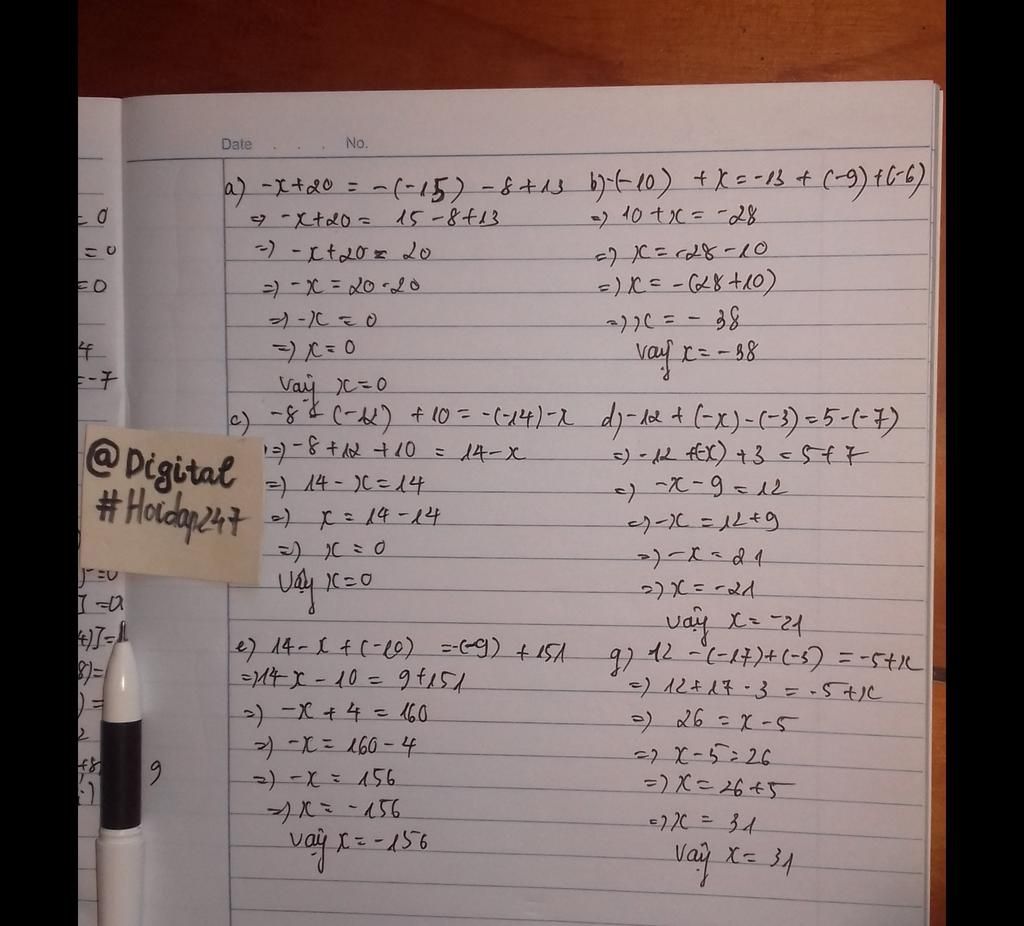 Date . . . No.
a) -x+20 = -(-15) - 8+13
=> -x+20 = 15-8+13
=> -x+20 = 20
=> -x = 20-20
=> -x = 0
=> x = 0
Vậy x=0
b) -(-10) + x = -13 + (-9)+(-6)
=> 10+x = -28
=> x = -28-10
=> x = -(28+10)
=> x = -38
Vậy x = -38
c) -8 - (-12) + 10 = -(-14)-x
=> -8+12+10 = 14-x
=> 14-x=14
=> x = 14-14
=> x = 0
Vậy x=0
d) -12 + (-x) - (-3) = 5-(-7)
=> -12 +(-x) + 3 = 5+7
=> -x-9 = 12
=> -x = 12+9
=> -x = 21
=> x = -21
Vậy x = -21
e) 14-x+(-10) = -(-9) + 151
=> 14-x-10 = 9+151
=> -x+4 = 160
=> -x = 160-4
=> -x = 156
=> x = -156
Vậy x = -156
g) 12 -(-17)+(-3) = -5+x
=> 12+17-3 = -5+x
=> 26 = x-5
=> x-5=26
=> x = 26+5
=> x = 31
Vậy x = 31
@Digital
#Hoidap247
= 0
= 0
= 0
4
=-7
9